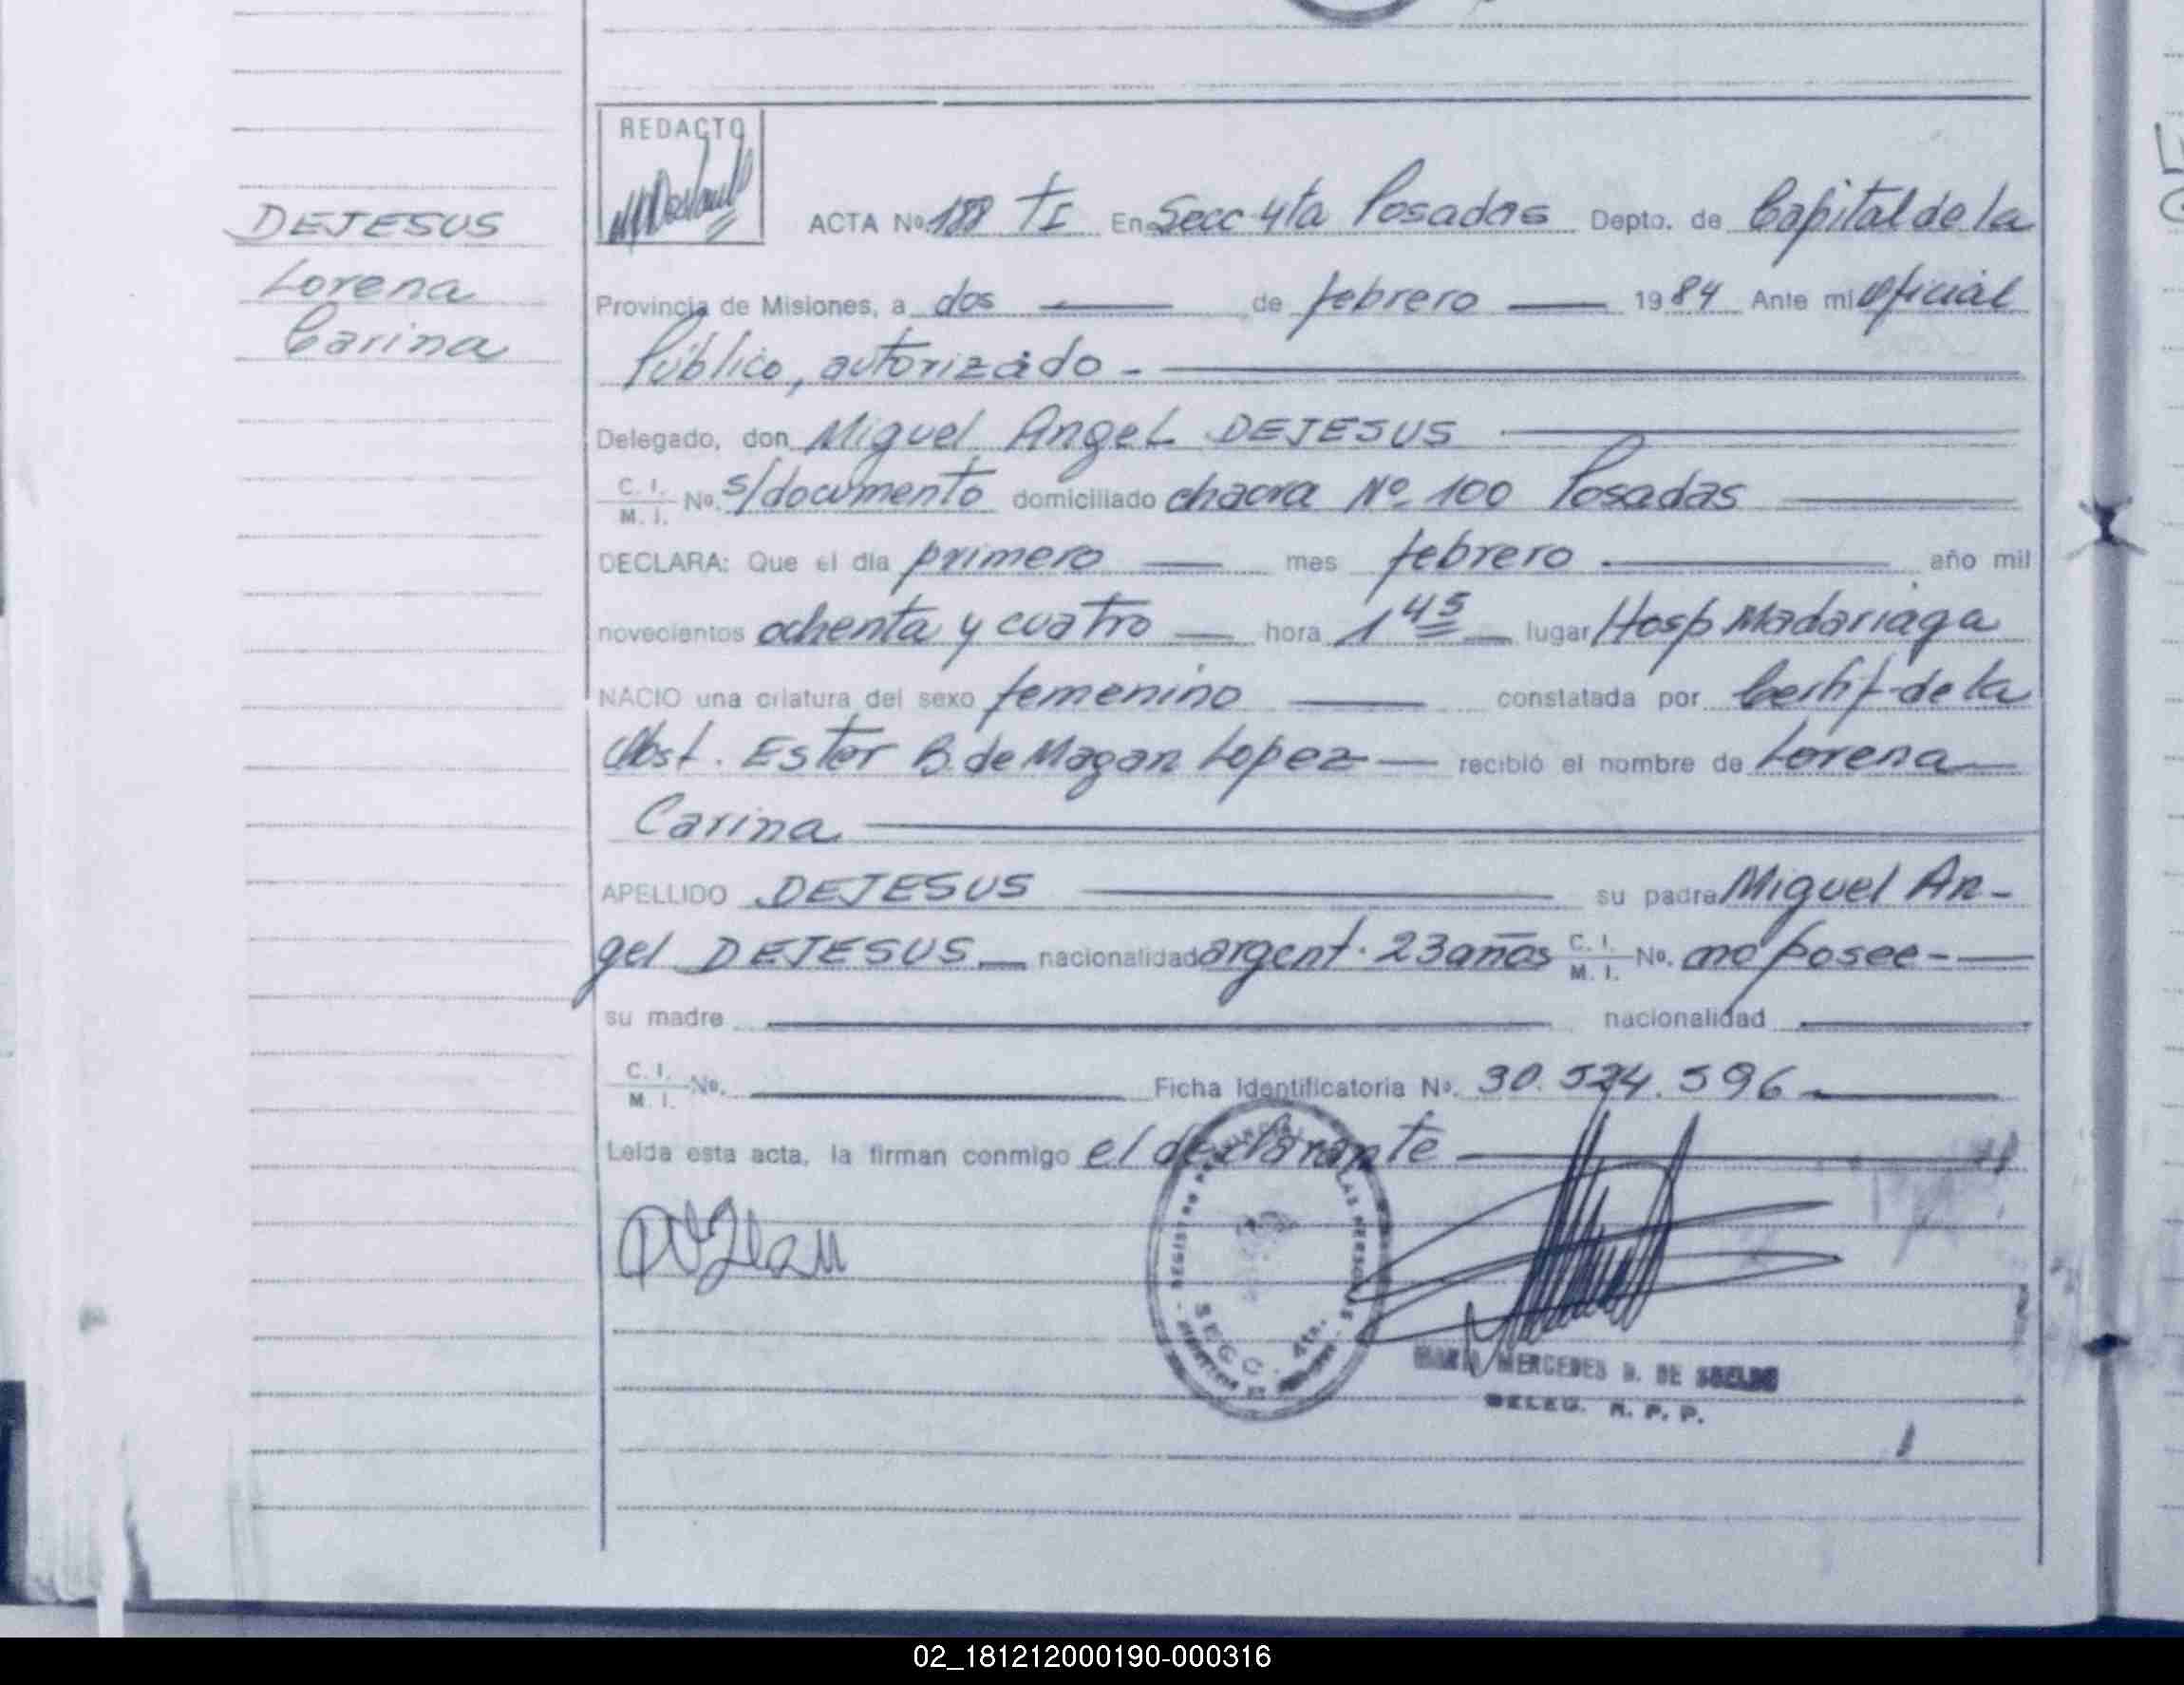 REDACTO
DEJESUS
Lorena
Carina
ACTA Nº 188 TI En Secc 4ta Posadas Depto. de Capital de la
Provincia de Misiones, a dos de febrero 1984 Ante mi Oficial
Público, autorizado -
Delegado, don Miguel Angel DEJESUS
C. I. / M. I. No. s/documento domiciliado chacra Nº 100 Posadas
DECLARA: Que el dia primero mes febrero año mil
novecientos ochenta y cuatro hora 1 45 lugar Hosp Madariaga
NACIO una criatura del sexo femenino constatada por Certif de la
Obst. Ester B. de Magan Lopez recibió el nombre de Lorena
Carina
APELLIDO DEJESUS su padre Miguel An-
gel DEJESUS nacionalidad argent. 23 años C. I. / M. I. No. no posee -
su madre nacionalidad
C. I. / M. I. No. Ficha Identificatoria Nº. 30.524.596
Leida esta acta, la firman conmigo el declarante
SECC. 4ta.
MERCEDES D. DE
DELEG. R. P. P.
02_181212000190-000316